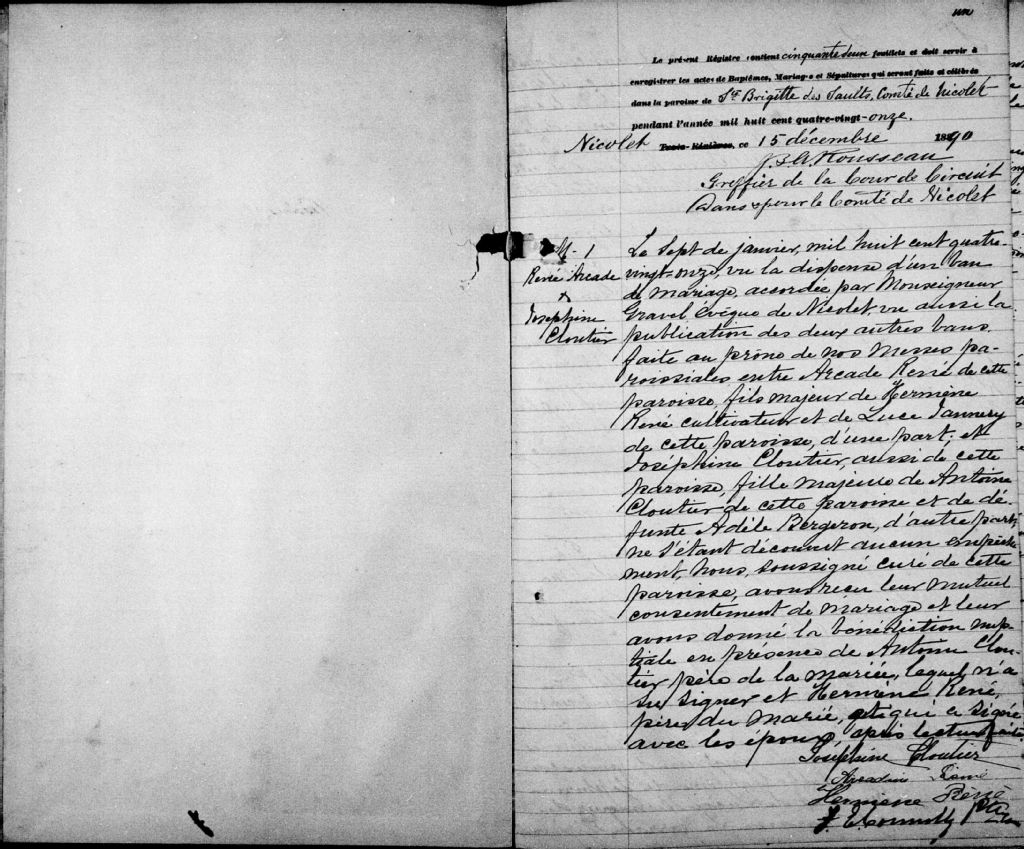 un
Le présent Régistre contient cinquante deux feuillets et doit servir à
enregistrer les actes de Baptêmes, Mariages et Sépultures qui seront faits et célébrés
dans la paroisse de Ste Brigitte des Saults, Comté de Nicolet
pendant l'année mil huit cent quatre-vingt-onze.
Nicolet Trois-Rivières, ce 15 décembre 1890
Rousseau
Greffier de la Cour de Circuit
Dans & pour le Comté de Nicolet
M-1
René Arcade
&
Joséphine
Cloutier
Le Sept de janvier, mil huit cent quatre-
vingt-onze, vu la dispense d'un ban
de mariage, accordée par Monseigneur
Gravel évêque de Nicolet, vu aussi la
publication des deux autres bans
faite au prône de nos Messes pa-
roissiales entre Arcade René de cette
paroisse, fils majeur de Hermène
René cultivateur et de Luce
de cette paroisse, d'une part; et
Joséphine Cloutier, aussi de cette
paroisse, fille majeure de Antoine
Cloutier de cette paroisse et de dé-
funte Adèle Bergeron, d'autre part;
ne s'étant découvert aucun empêche
ment, nous, soussigné curé de cette
paroisse, avons reçu leur mutuel
consentement de mariage et leur
avons donné la bénédiction nup-
tiale en présence de Antoine Clou-
tier père de la mariée, lequel n'a
su signer et Hermène René,
père du marié, qui a signé
avec les époux, après lecture faite.
Joséphine Cloutier
René
Hermène René
Ptre